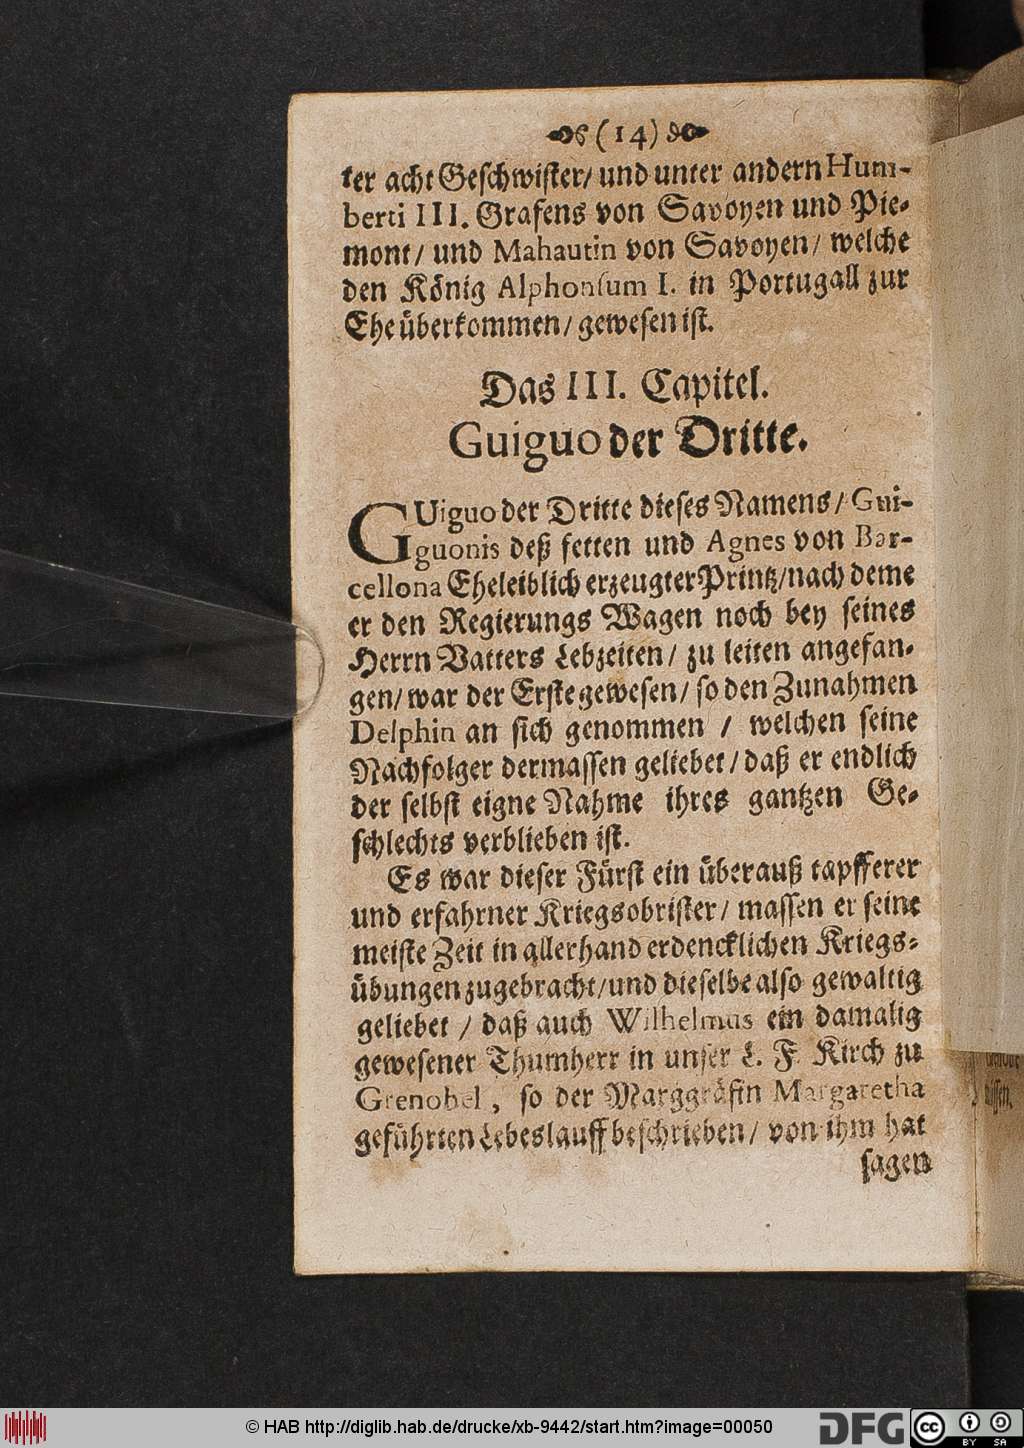 (14)
ter acht Geschwister/ und unter andern Hum-
berti III. Grafens von Savoyen und Pie-
mont/ und Mahautin von Savoyen/ welche
den König Alphonsum I. in Portugall zur
Ehe überkommen/ gewesen ist.
Das III. Capitel.
Guiguo der Dritte.
GUiguo der Dritte dieses Namens/ Gui-
guonis deß fetten und Agnes von Bar-
cellona Eheleiblich erzeugter Printz/ nach deme
er den Regierungs Wagen noch bey seines
Herrn Vatters Lebzeiten/ zu leiten angefan-
gen/ war der Erste gewesen/ so den Zunahmen
Delphin an sich genommen / welchen seine
Nachfolger dermassen geliebet/ daß er endlich
der selbst eigne Nahme ihres gantzen Ge-
schlechts verblieben ist.
Es war dieser Fürst ein überauß tapfferer
und erfahrner Kriegsobrister/ massen er seine
meiste Zeit in allerhand erdencklichen Kriegs-
übungen zugebracht/ und dieselbe also gewaltig
geliebet / daß auch Wilhelmus ein damalig
gewesener Thumherr in unser L. F. Kirch zu
Grenobel, so der Marggräfin Margaretha
geführten Lebeslauff beschrieben/ von ihm hat
sagen
© HAB http://diglib.hab.de/drucke/xb-9442/start.htm?image=00050
DFG
cc
BY SA